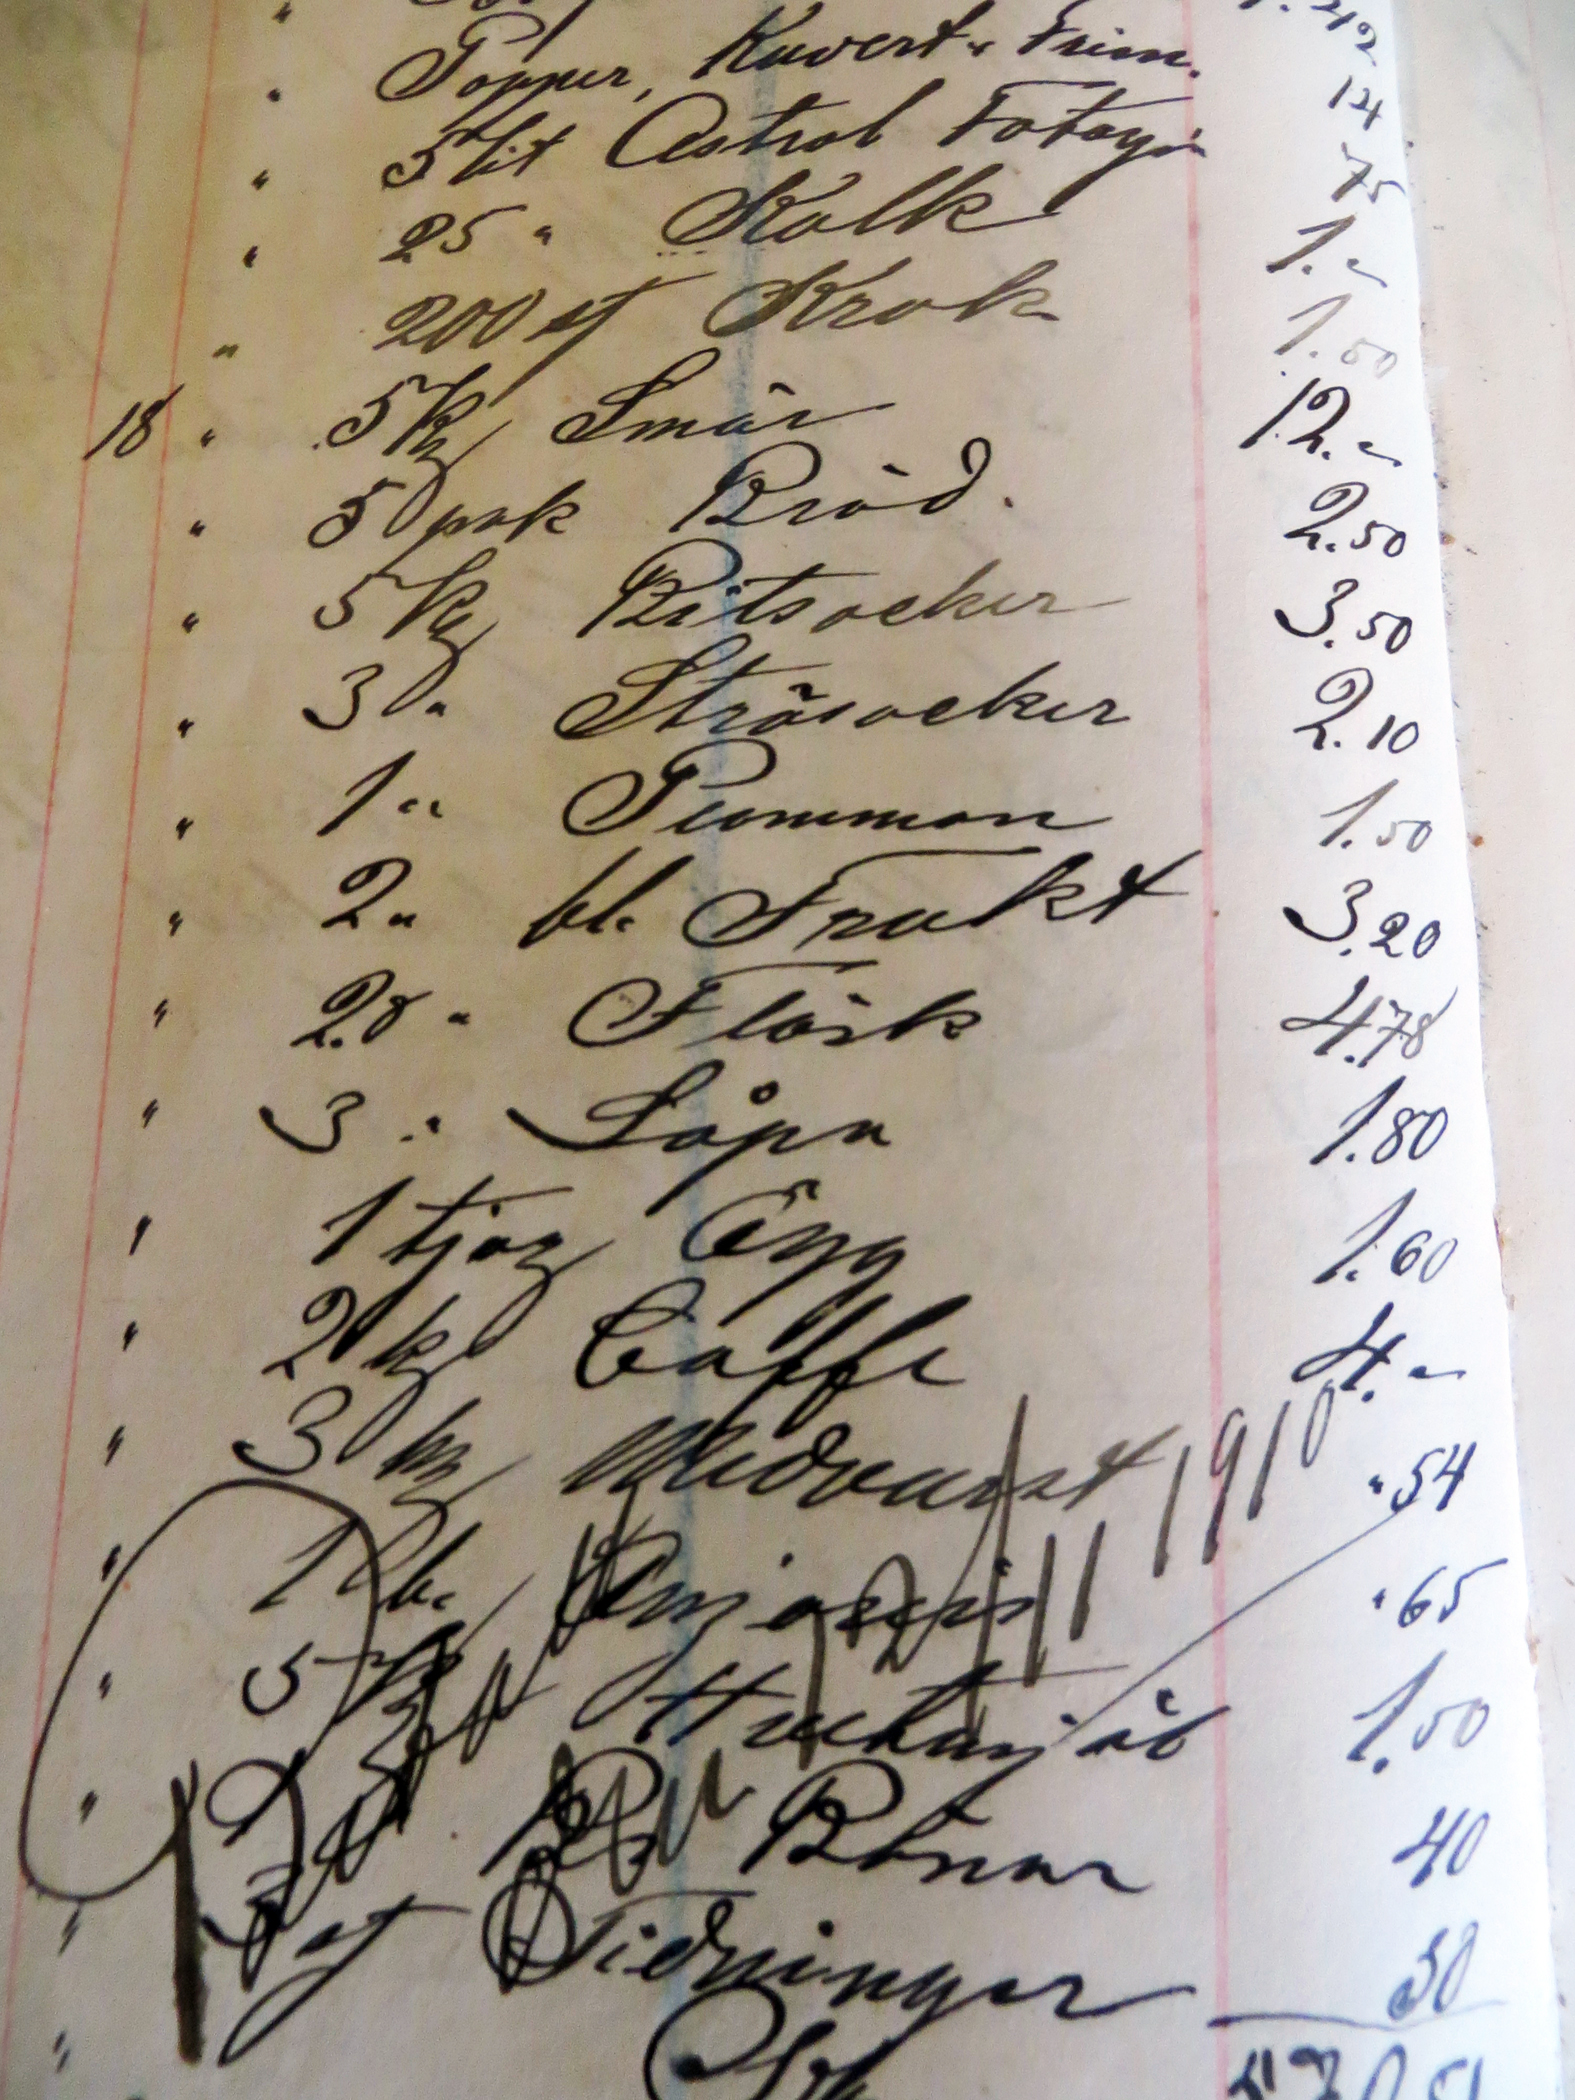 " Papper, Kuvert " Frim. 124
" 5 lit Astrol Fotogin 75
" 25 " Kalk 1."
" 200 st Krok 1.50
18 " 5 kg Smör 12."
" 5 pak Bröd. 2.50
" 5 kg Bitsocker 3.50
" 3 " Strösocker 2.10
" 1 " Plommon 1.50
" 2 " bl. Frukt 3.20
" 2.8 " Fläsk 4.78
" 3 " Såpa 1.80
" 1 tjog Ägg 1.60
" 2 kg Caffe 4."
" 3 hg Medvurst " 54
1910
" 1 b. Ansjovis " 65
" 5 kg Hvetemjöl 1.50
" Bönor 40
" st Tidningar 30